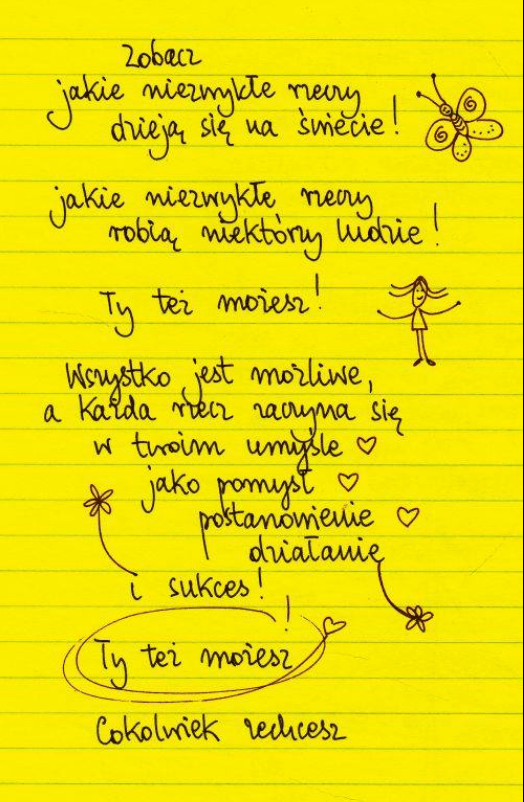 Zobacz
jakie niezwykłe rzeczy
dzieją się na świecie!
jakie niezwykłe rzeczy
robią niektórzy ludzie!
Ty też możesz!
Wszystko jest możliwe,
a każda rzecz zaczyna się
w twoim umyśle
jako pomysł
postanowienie
działanie
i sukces!
Ty też możesz!
Cokolwiek zechcesz